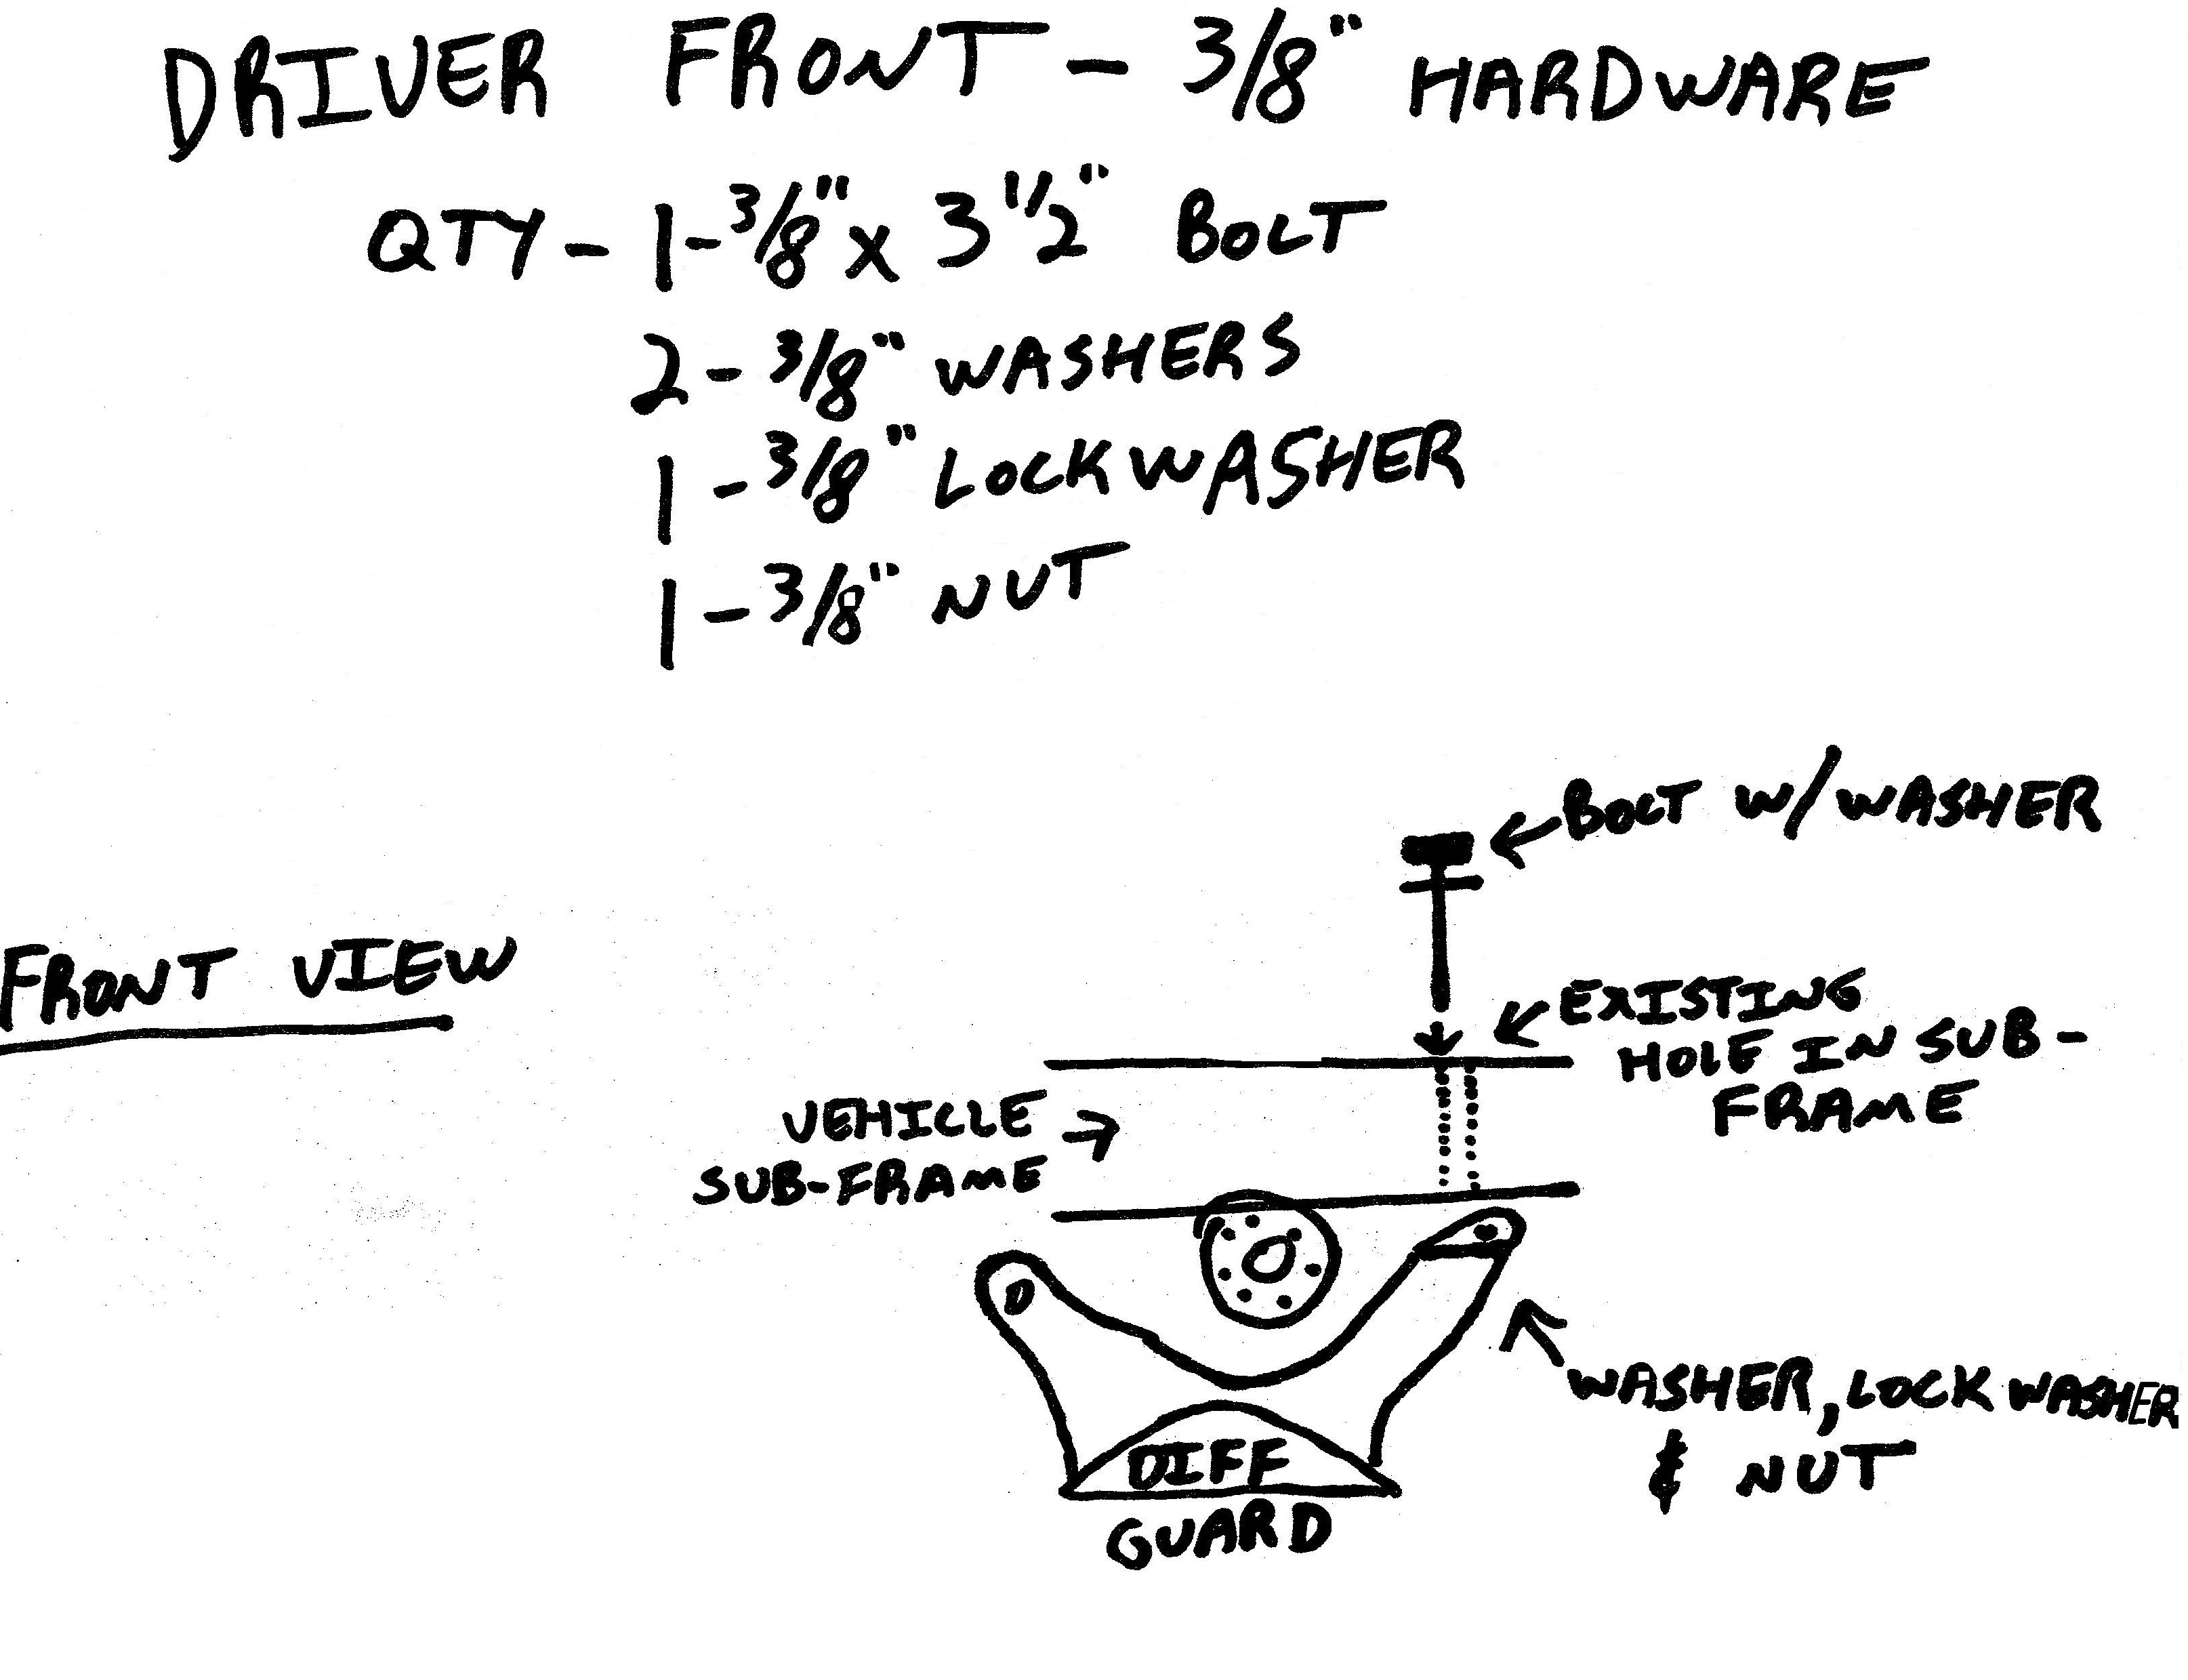 DRIVER FRONT - 3/8" HARDWARE
QTY - 1 - 3/8" x 3 1/2" BOLT
2 - 3/8" WASHERS
1 - 3/8" LOCK WASHER
1 - 3/8" NUT
BOLT W/WASHER
FRONT VIEW
EXISTING
HOLE IN SUB-
FRAME
VEHICLE
SUB-FRAME
WASHER, LOCK WASHER
& NUT
DIFF
GUARD